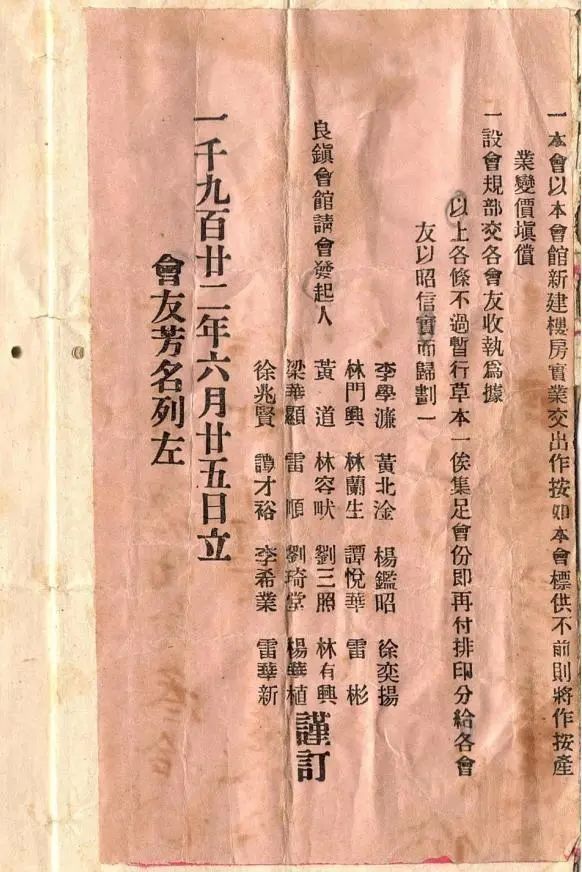 一本會以本會館新建樓房實業交出作按如本會標供不前則將作按產
業變價塡償
一設會規部交各會友收執爲據
以上各條不過暫行草本一俟集足會份即再付排印分給各會
友以昭信實而歸劃一
良鎭會館請會發起人
李學濂 黃北淦 楊鑑昭 徐奕揚
林門興 林蘭生 譚悅華 雷彬
黃道 林容畎 劉三照 林有興
梁華顯 雷順 劉琦堂 楊華植
徐兆賢 譚才裕 李希業 雷華新
謹訂
一千九百廿二年六月廿五日立
會友芳名列左